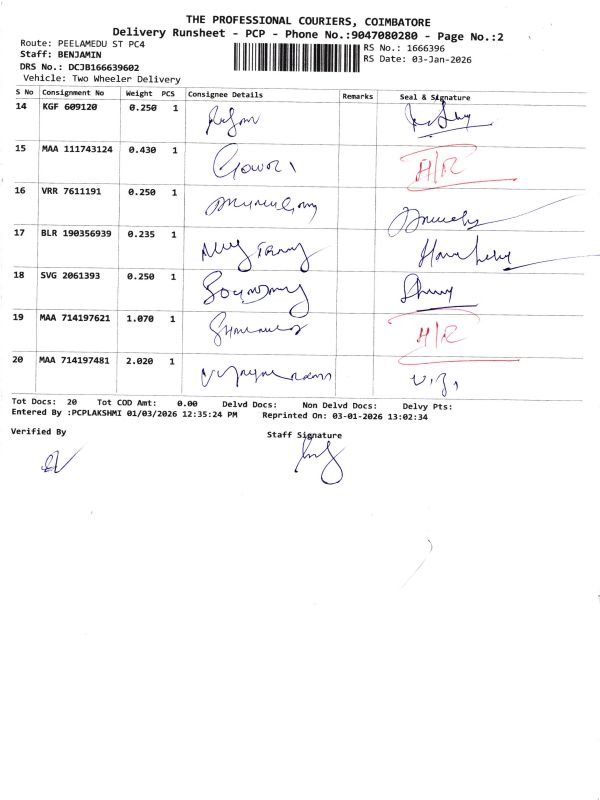 THE PROFESSIONAL COURIERS, COIMBATORE
Delivery Runsheet - PCP - Phone No.:9047080280 - Page No.:2
Route: PEELAMEDU ST PC4
RS No.: 1666396
Staff: BENJAMIN
RS Date: 03-Jan-2026
DRS No.: DCJB166639602
Vehicle: Two Wheeler Delivery
S No Consignment No Weight PCS Consignee Details Remarks Seal & Signature
14 KGF 609120 0.250 1
15 MAA 111743124 0.430 1 Gowri H/R
16 VRR 7611191 0.250 1
17 BLR 190356939 0.235 1
18 SVG 2061393 0.250 1
19 MAA 714197621 1.070 1 H/R
20 MAA 714197481 2.020 1
Tot Docs: 20 Tot COD Amt: 0.00 Delvd Docs: Non Delvd Docs: Delvy Pts:
Entered By :PCPLAKSHMI 01/03/2026 12:35:24 PM Reprinted On: 03-01-2026 13:02:34
Verified By
Staff Signature